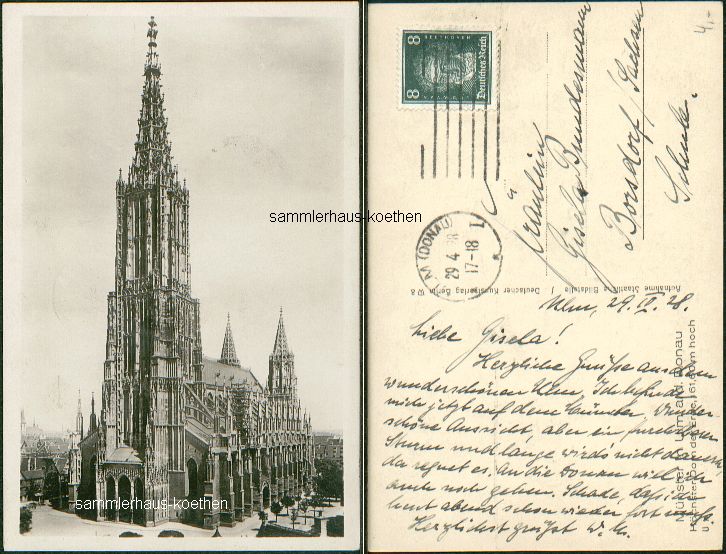 sammlerhaus-koethen
sammlerhaus-koethen
4,-
BEETHOVEN
8 8
Deutsches Reich
M (DONAU)
29.4. 28
17-18
Fräulein
Gisela Brundesmann
Borsdorf / Sachsen
Schule.
Aufnahme Staatl. Bildstelle / Deutscher Kunstverlag Berlin W 8
Münster Ulm a. d. Donau
Höchster Dom der Erde, 161,60 m hoch
Ulm, 29. IV. 28.
Liebe Gisela!
Herzliche Grüsse aus dem
wunderschönen Ulm. Ich befinde
mich jetzt auf dem Münster. Wunder-
schöne Aussicht, aber ein furchtbarer
Sturm und lange wird's nicht dauern
da regnet es. An die Donau will ich
auch noch gehen. Schade, dass ich
heut abend schon wieder fort muss.
Herzlichst grüsst